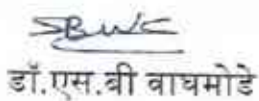 डॉ.एस.बी वाघमोडे